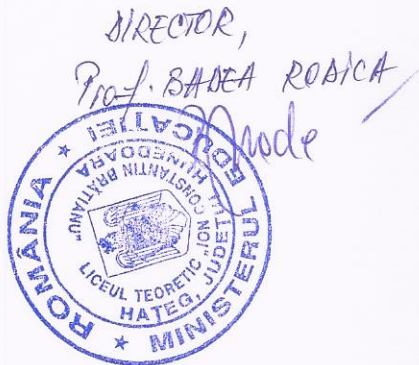 DIRECTOR,
Prof. BADEA RODICA
ROMÂNIA * MINISTERUL EDUCAȚIEI *
LICEUL TEORETIC „ION CONSTANTIN BRĂTIANU"
HAȚEG, JUDEȚUL HUNEDOARA